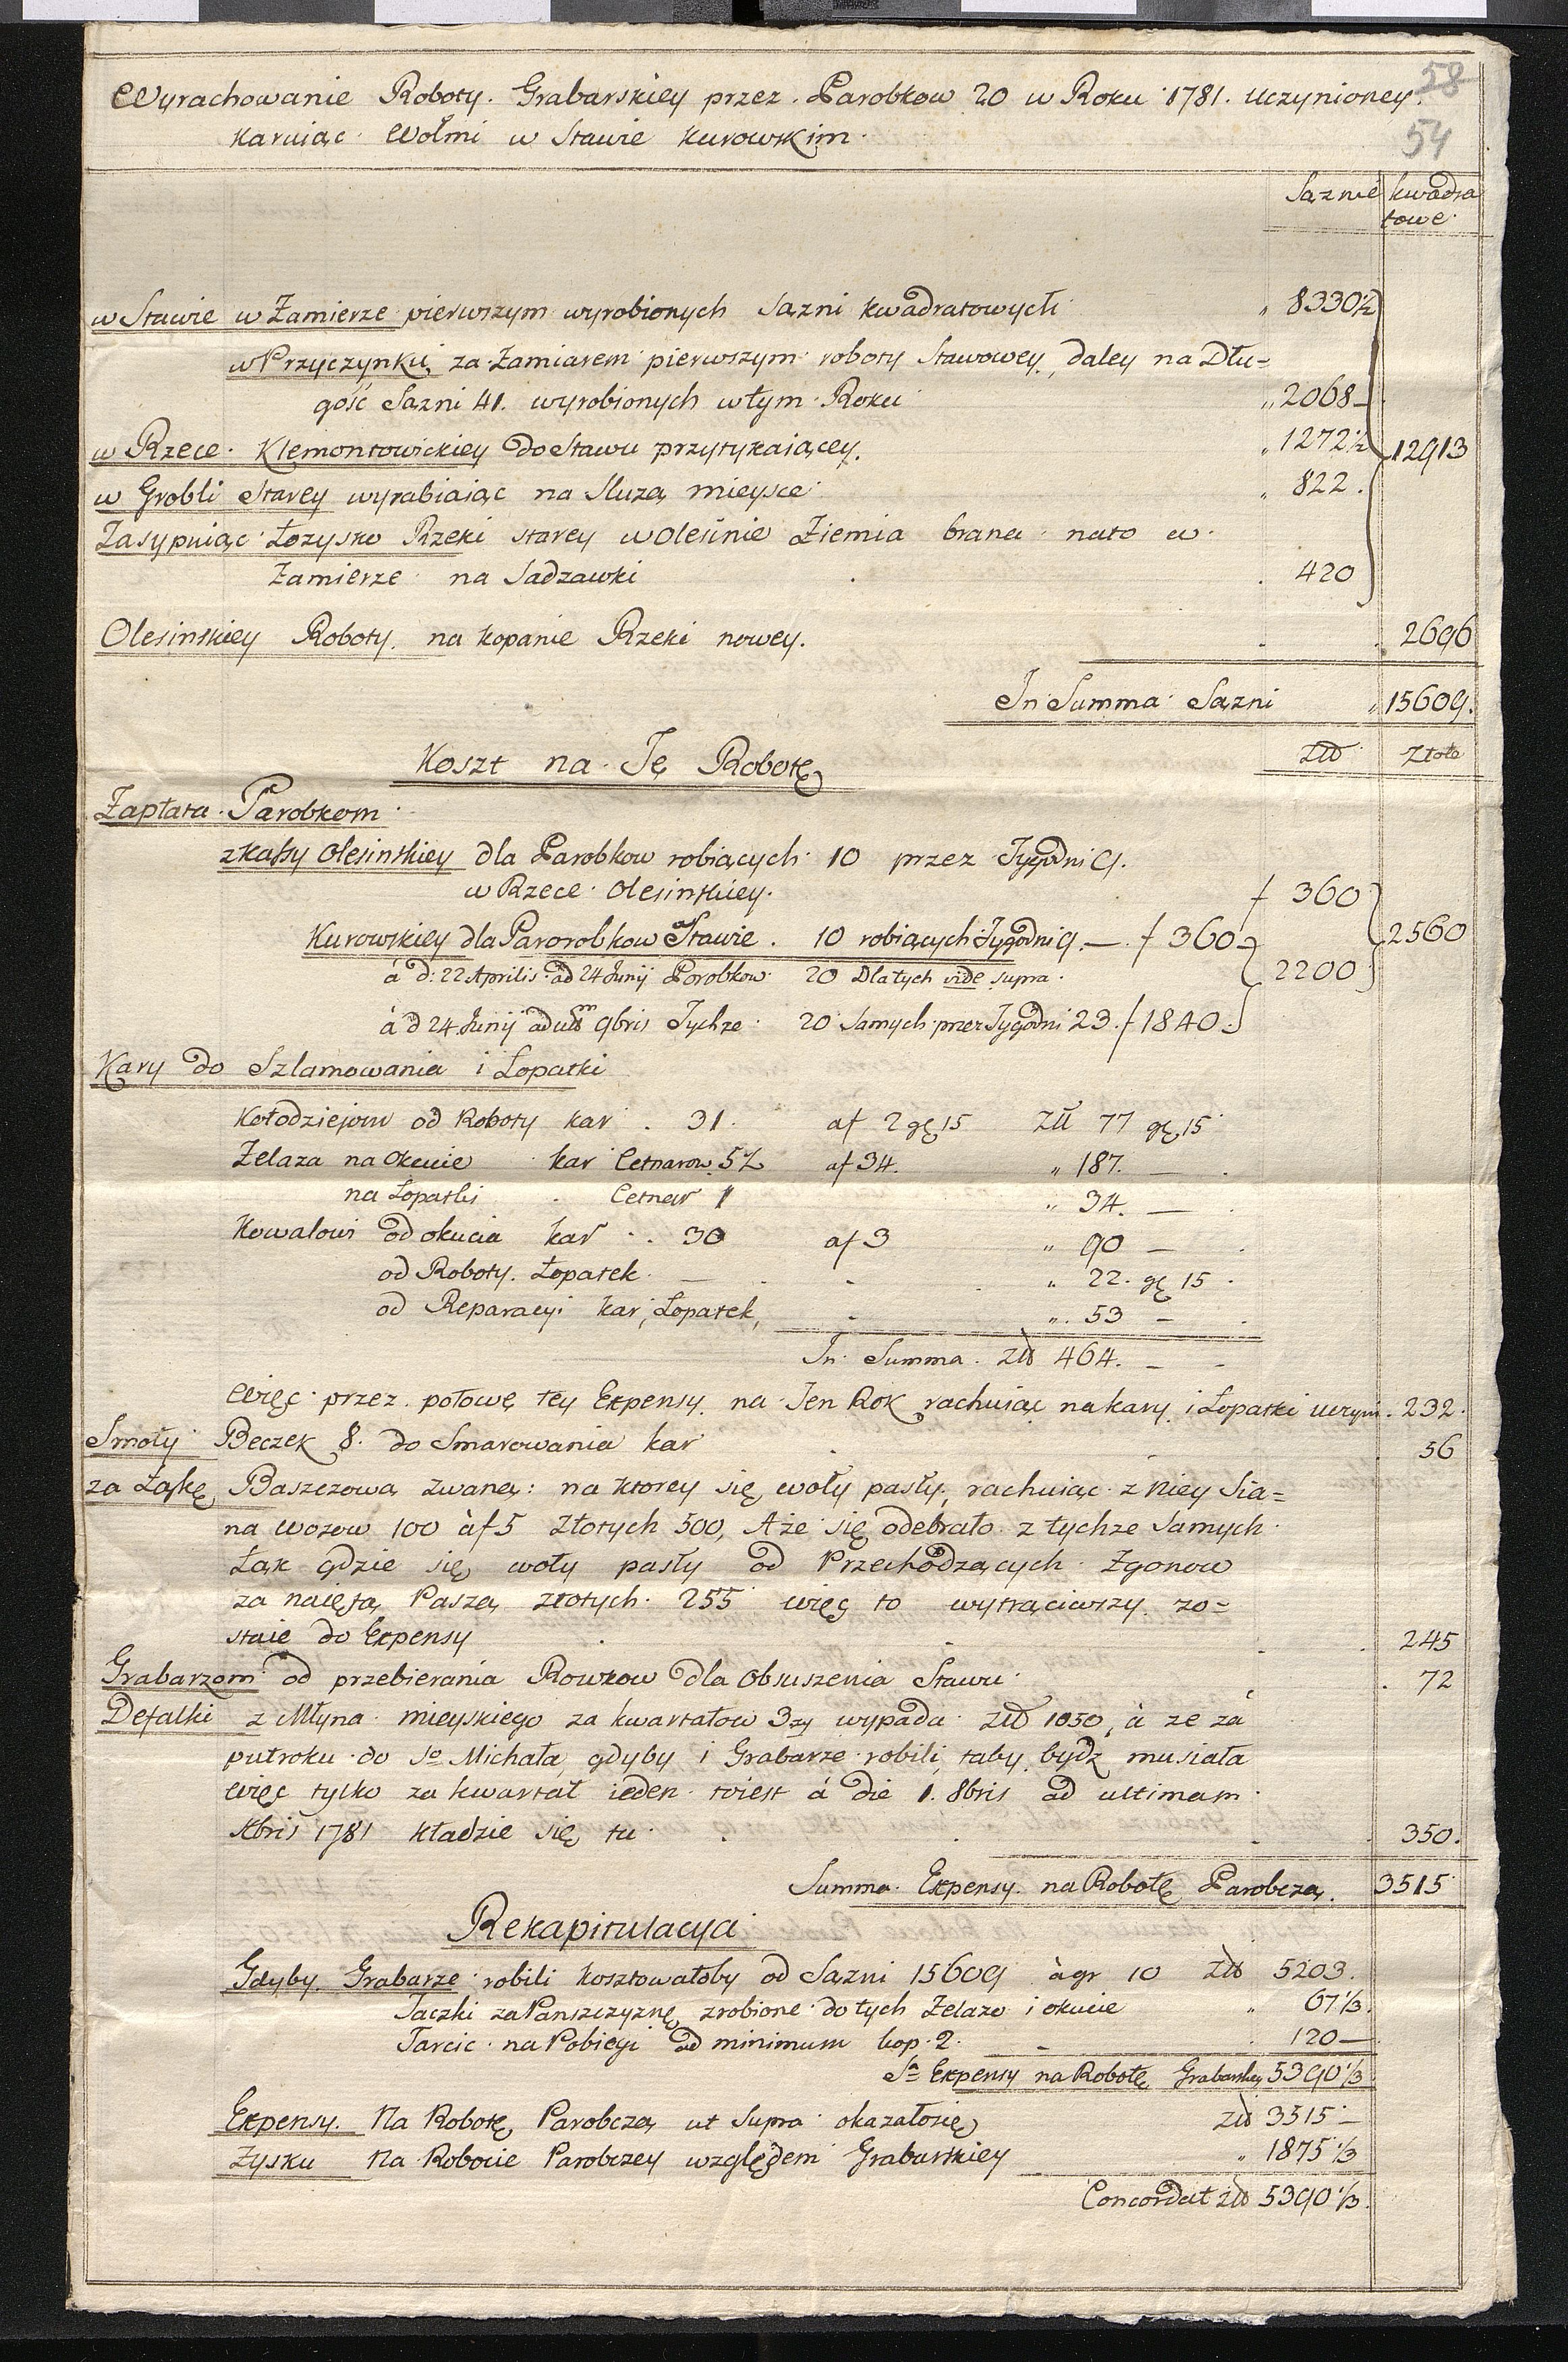 58
Wyrachowanie Roboty. Grabarskiey przez. Parobkow 20 w Roku 1781. Uczynioney.
54
karuiąc Wołmi w Stawie Kurowskim.
Sążnie kwadra
towe.
w Stawie w Zamierze pierwszym wyrobionych Sązni kwadratowych „ 8330½
w Przyczynku, za Zamiarem pierwszym roboty Stawowey, daley na Dłu=
gość Sązni 41. wyrobionych w tym Roku „ 2068 –
w Rzece Klemontowickiey do Stawu przytykaiącey. „ 1272½ 12913
w Grobli Starey wyrabiaiąc na Sluzą mieysce „ 822.
Zasypuiąc Łozysko Rzeki starey w Olesinie Ziemia brana nato w
Zamierze na Sadzawki . 420
Olesinskiey Roboty. na kopanie Rzeki nowey. . 2696
In Summa Sązni „ 15609.
Koszt na Tę Robotę Złł Złote
Zapłata Parobkom
z Kassy Olesinskiey dla Parobkow robiących 10 przez Tygodni 9.
w Rzece Olesinskiey. f 360
Kurowskiey dla Pavorobkow w Stawie. 10 robiących Tygodni 9. — f 360 2560
à d: 22 Aprilis ad 24 Junij Porobkow 20 Dla tych vide supra. 2200
à d 24 Junij ad ult m 9bris Tychze 20 samych przez Tygodni 23. f 1840.
Kary do Szlamowania i Łopatki
Kołodziejom od Roboty kar . 31. af 2 gę 15 Złł 77 gę 15
Zelaza na Okucie kar Cetnarow 5½ af 34. „ 187. —
na Łopatki . Cetnar 1 „ 34. —
Kowalowi od okucia kar . . 30 af 3 „ 90 —
od Roboty. Łopatek — „ 22. gę 15.
od Reparacyi kar, Łopatek, „ 53 —
In Summa. Złł 464. – –
Więc przez połowę tey Expensy na Ten Rok rachuiąc na kary i Łopatki uczyni. 232.
Smoły Beczek 8. do Smarowania kar . 56
za Łąkę Baszczową zwaną: na ktorey się woły pasły, rachuiąc z niey Sia=
na Wozow 100 àf 5 Złotych 500, A że się odebrało z tychze samych
Łąk gdzie się woły pasły od Przechodzących Zgonow
za naiętą Paszą złotych 255 więc to wytrąciwszy zo=
staie do Expensy . 245
Grabarzom od przebierania Rowkow dla Obsuszenia Stawu . 72
Defalki z Młyna mieyskiego za kwartałow 3zy wypada Złł 1050, à ze zá
putroku do So Michała, gdyby i Grabarze robili, taby bydź musiała
więc tylko za kwartał ieden toiest à die 1. 8bris ad ultimam
Xbris 1781 kładzie się tu . 350.
Summa Expensy na Robotę Parobczą. 3515
Rekapitulacya
Gdyby Grabarze robili kosztowałoby od Sązni 15609 àgr 10 Złł 5203.
Taczki za Panszczyznę zrobione do tych Zelazo i okucie „ 67⅓.
Tarcic na Pobiegi ad minimum kop. 2. — 120 —
Sa Expensy na Robotę Grabarskę 5390⅓
Expensy. Na Robotę Parobczą ut Supra okazałosię Złł 3515 –
Zysku Na Robocie Parobczey względem Grabarskiey „ 1875⅓
Concordat Złł 5390⅓.